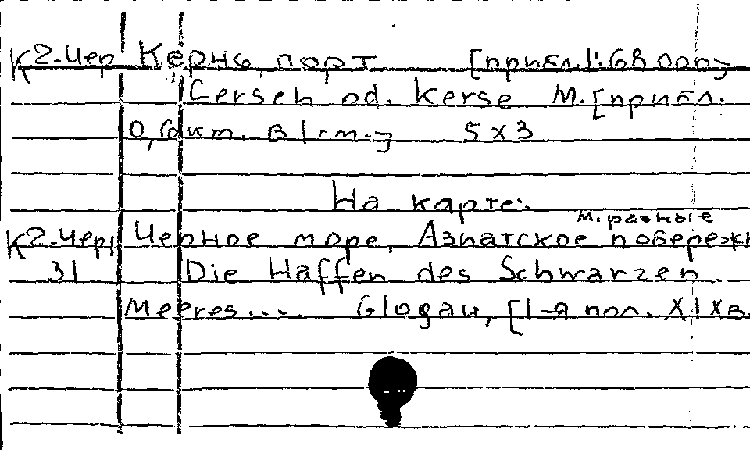 К2-Чер Кернь, порт [прибл.1:68.000]
Cerseh od. Kerse М. [прибл.
0,6 км. в 1 см.] 5 х 3
На карте:
м. разные
К2-Чер, Черное море, Азиатское побереж
31 Die Haffen des Schwarzen
Meeres.... Glogau, [1-я пол. XIX в.